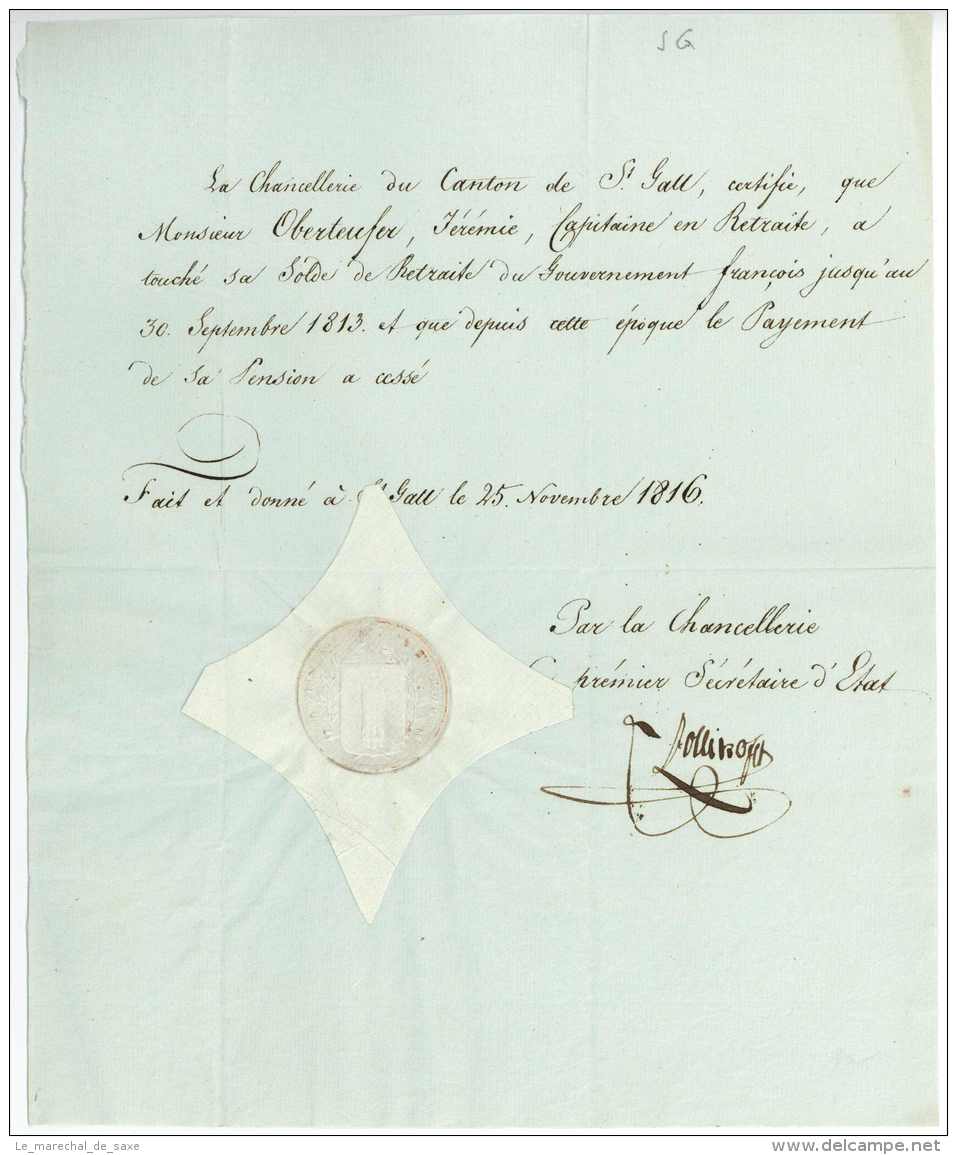 SG
La Chancellerie du Canton de St Gall, certifie, que
Monsieur Oberteufer, Jérémie, Capitaine en Retraite, a
touché sa Solde de Retraite du Gouvernement françois jusqu'au
30. Septembre 1813. et que depuis cette époque le Payement
de sa Pension a cessé
Fait et donné à St Gall le 25. Novembre 1816.
Par la Chancellerie
prémier Sécrétaire d'Etat
Le_marechal_de_saxe
www.delcampe.net